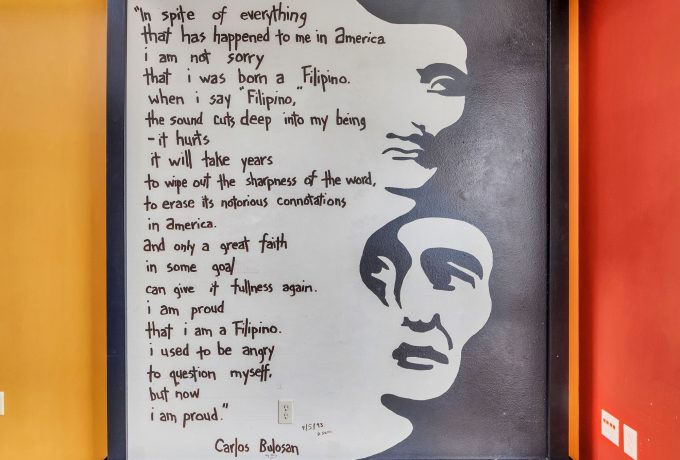 "In spite of everything
that has happened to me in America
i am not sorry
that i was born a Filipino.
when i say "Filipino,"
the sound cuts deep into my being
- it hurts
it will take years
to wipe out the sharpness of the word,
to erase its notorious connotations
in america.
and only a great faith
in some goal
can give it fullness again.
i am proud
that i am a Filipino.
i used to be angry
to question myself.
but now
i am proud."
Carlos Bulosan